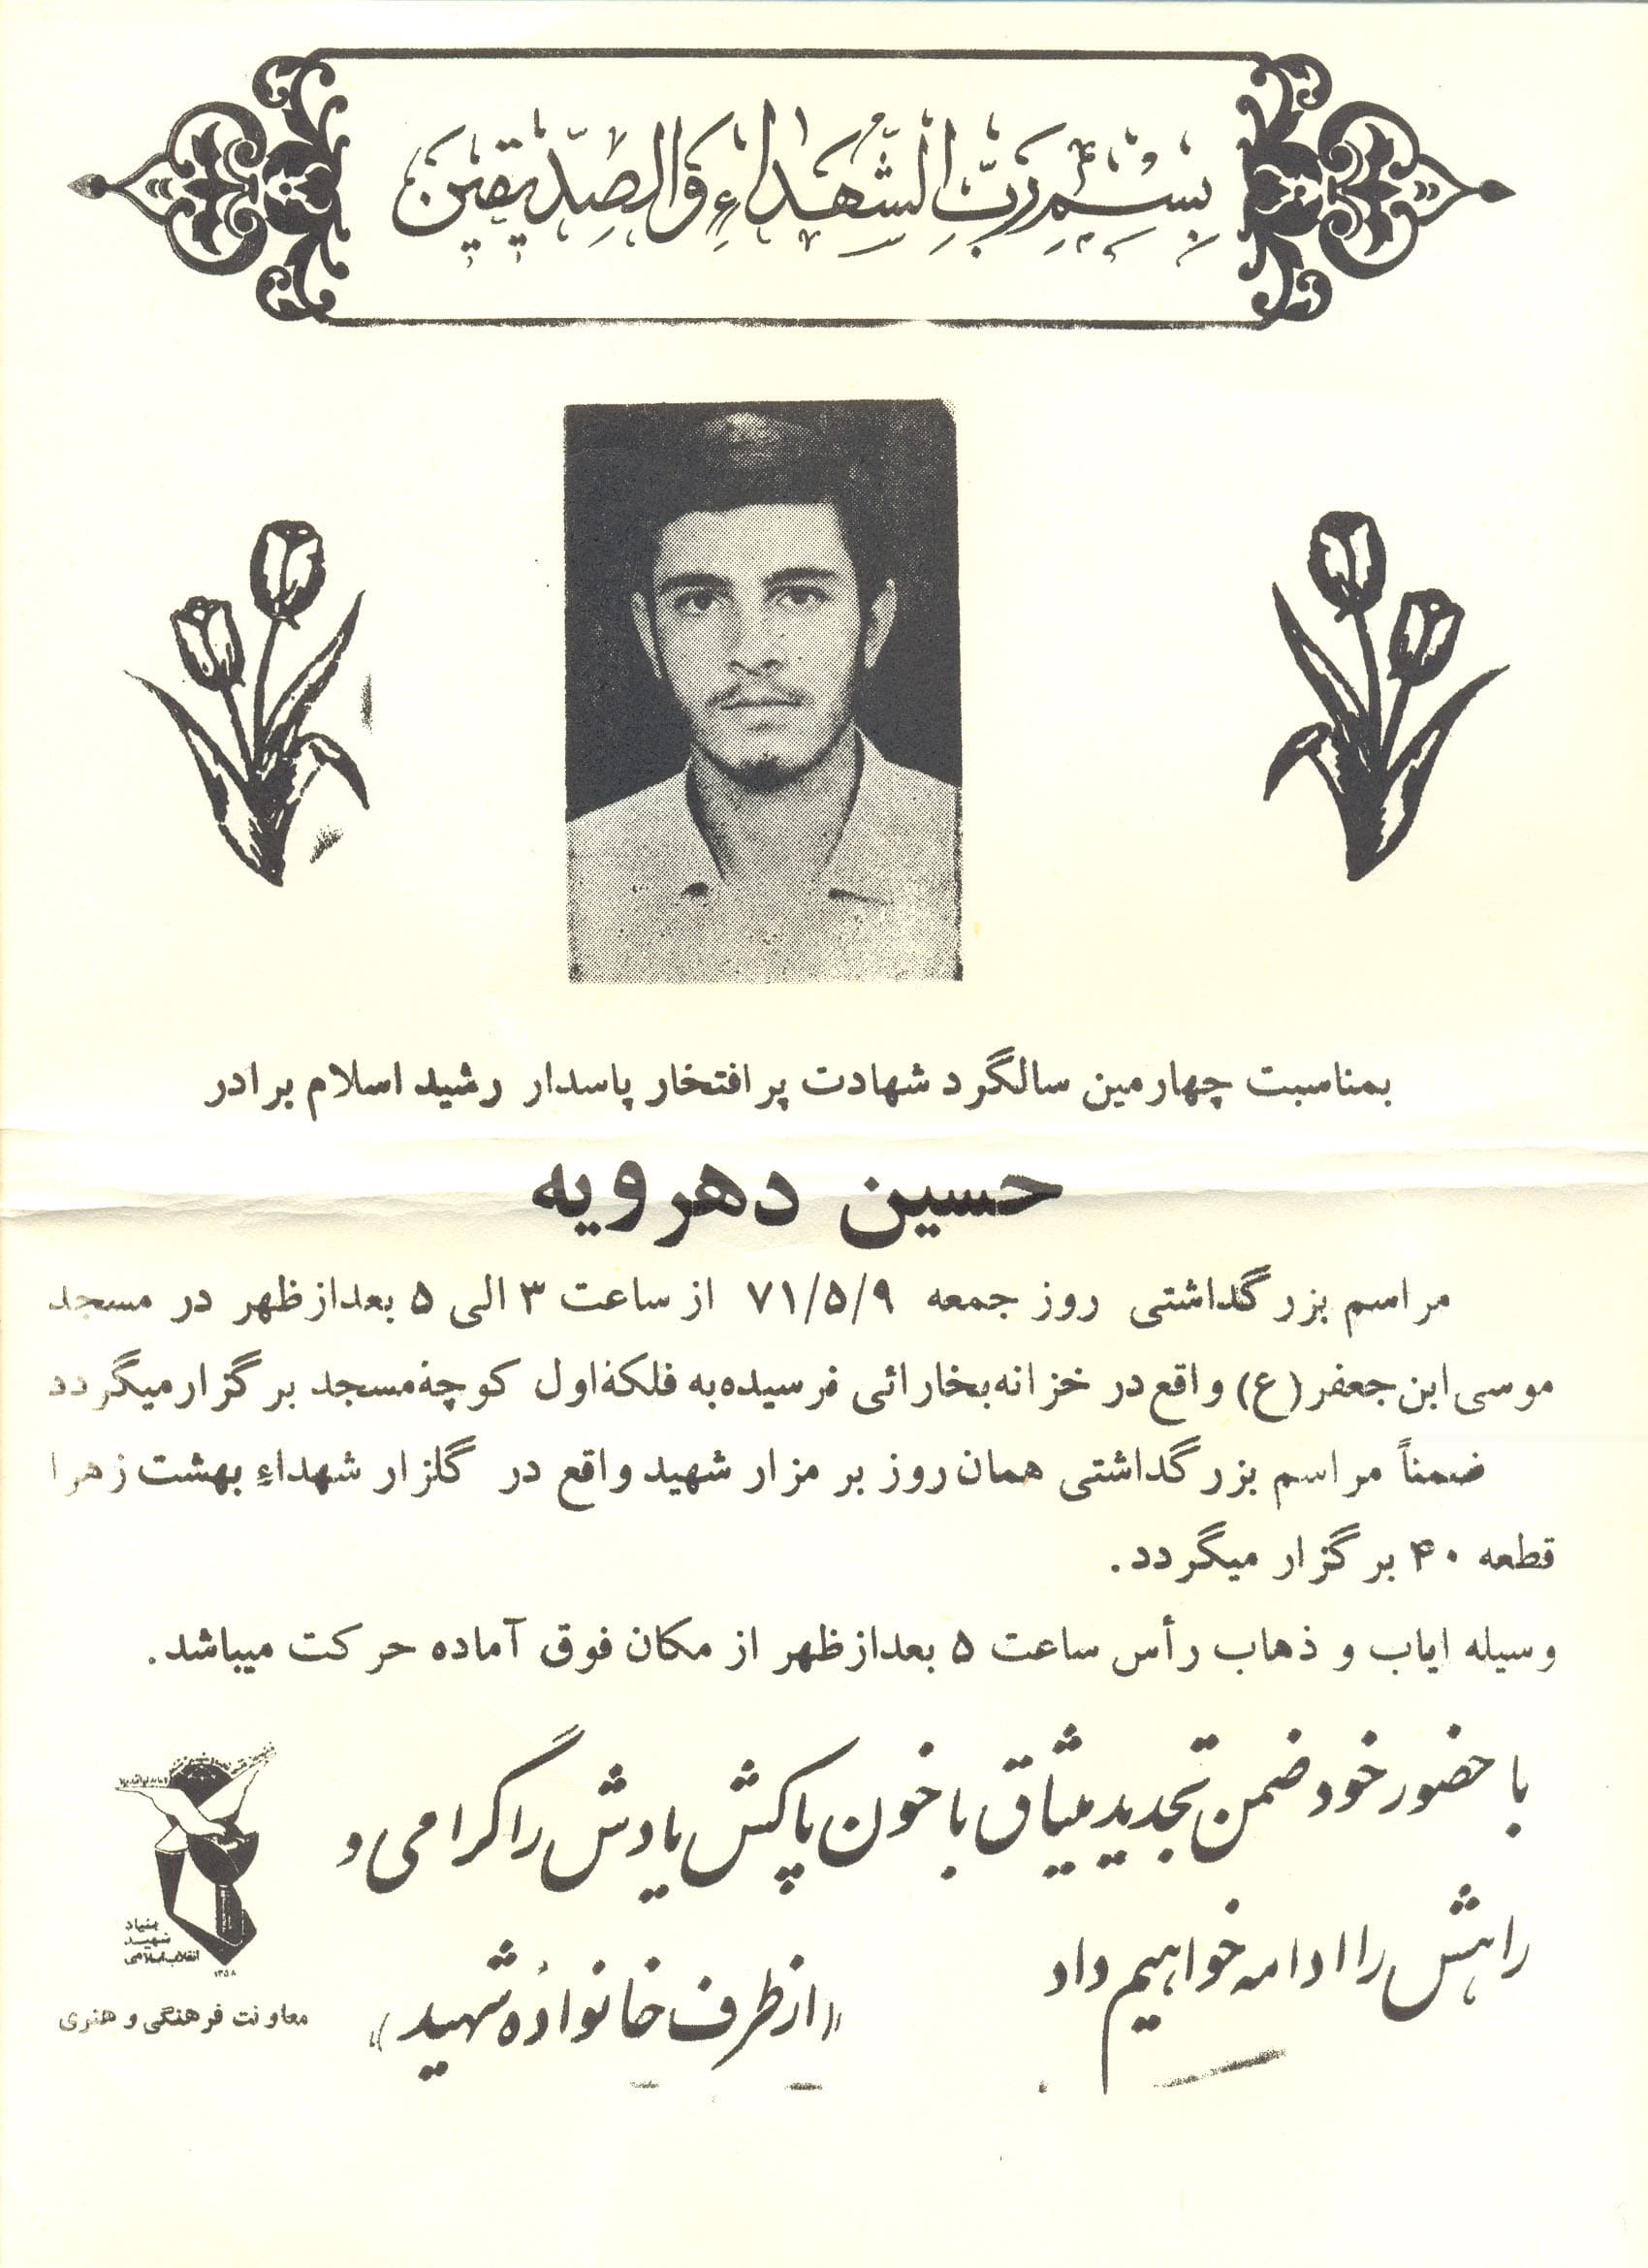 بِسْمِ رَبِّ الشُّهَداءِ وَالصِّدّیقینَ
بمناسبت چهارمین سالگرد شهادت پرافتخار پاسدار رشید اسلام برادر
حسین دهرویه
مراسم بزرگداشتی روز جمعه ۷۱/۵/۹ از ساعت ۳ الی ۵ بعدازظهر در مسجد
موسی ابن جعفر (ع) واقع در خزانه بخارائی نرسیده به فلکه اول کوچه مسجد برگزار میگردد
ضمناً مراسم بزرگداشتی همان روز بر مزار شهید واقع در گلزار شهداءِ بهشت زهرا
قطعه ۴۰ برگزار میگردد.
وسیله ایاب و ذهاب رأس ساعت ۵ بعدازظهر از مکان فوق آماده حرکت میباشد.
با حضور خود ضمن تجدید میثاق با خون پاکش یادش را گرامی و
راهش را ادامه خواهیم داد
«از طرف خانواده شهید»
بنیاد
شهید
انقلاب اسلامی
۱۳۵۸
معاونت فرهنگی و هنری